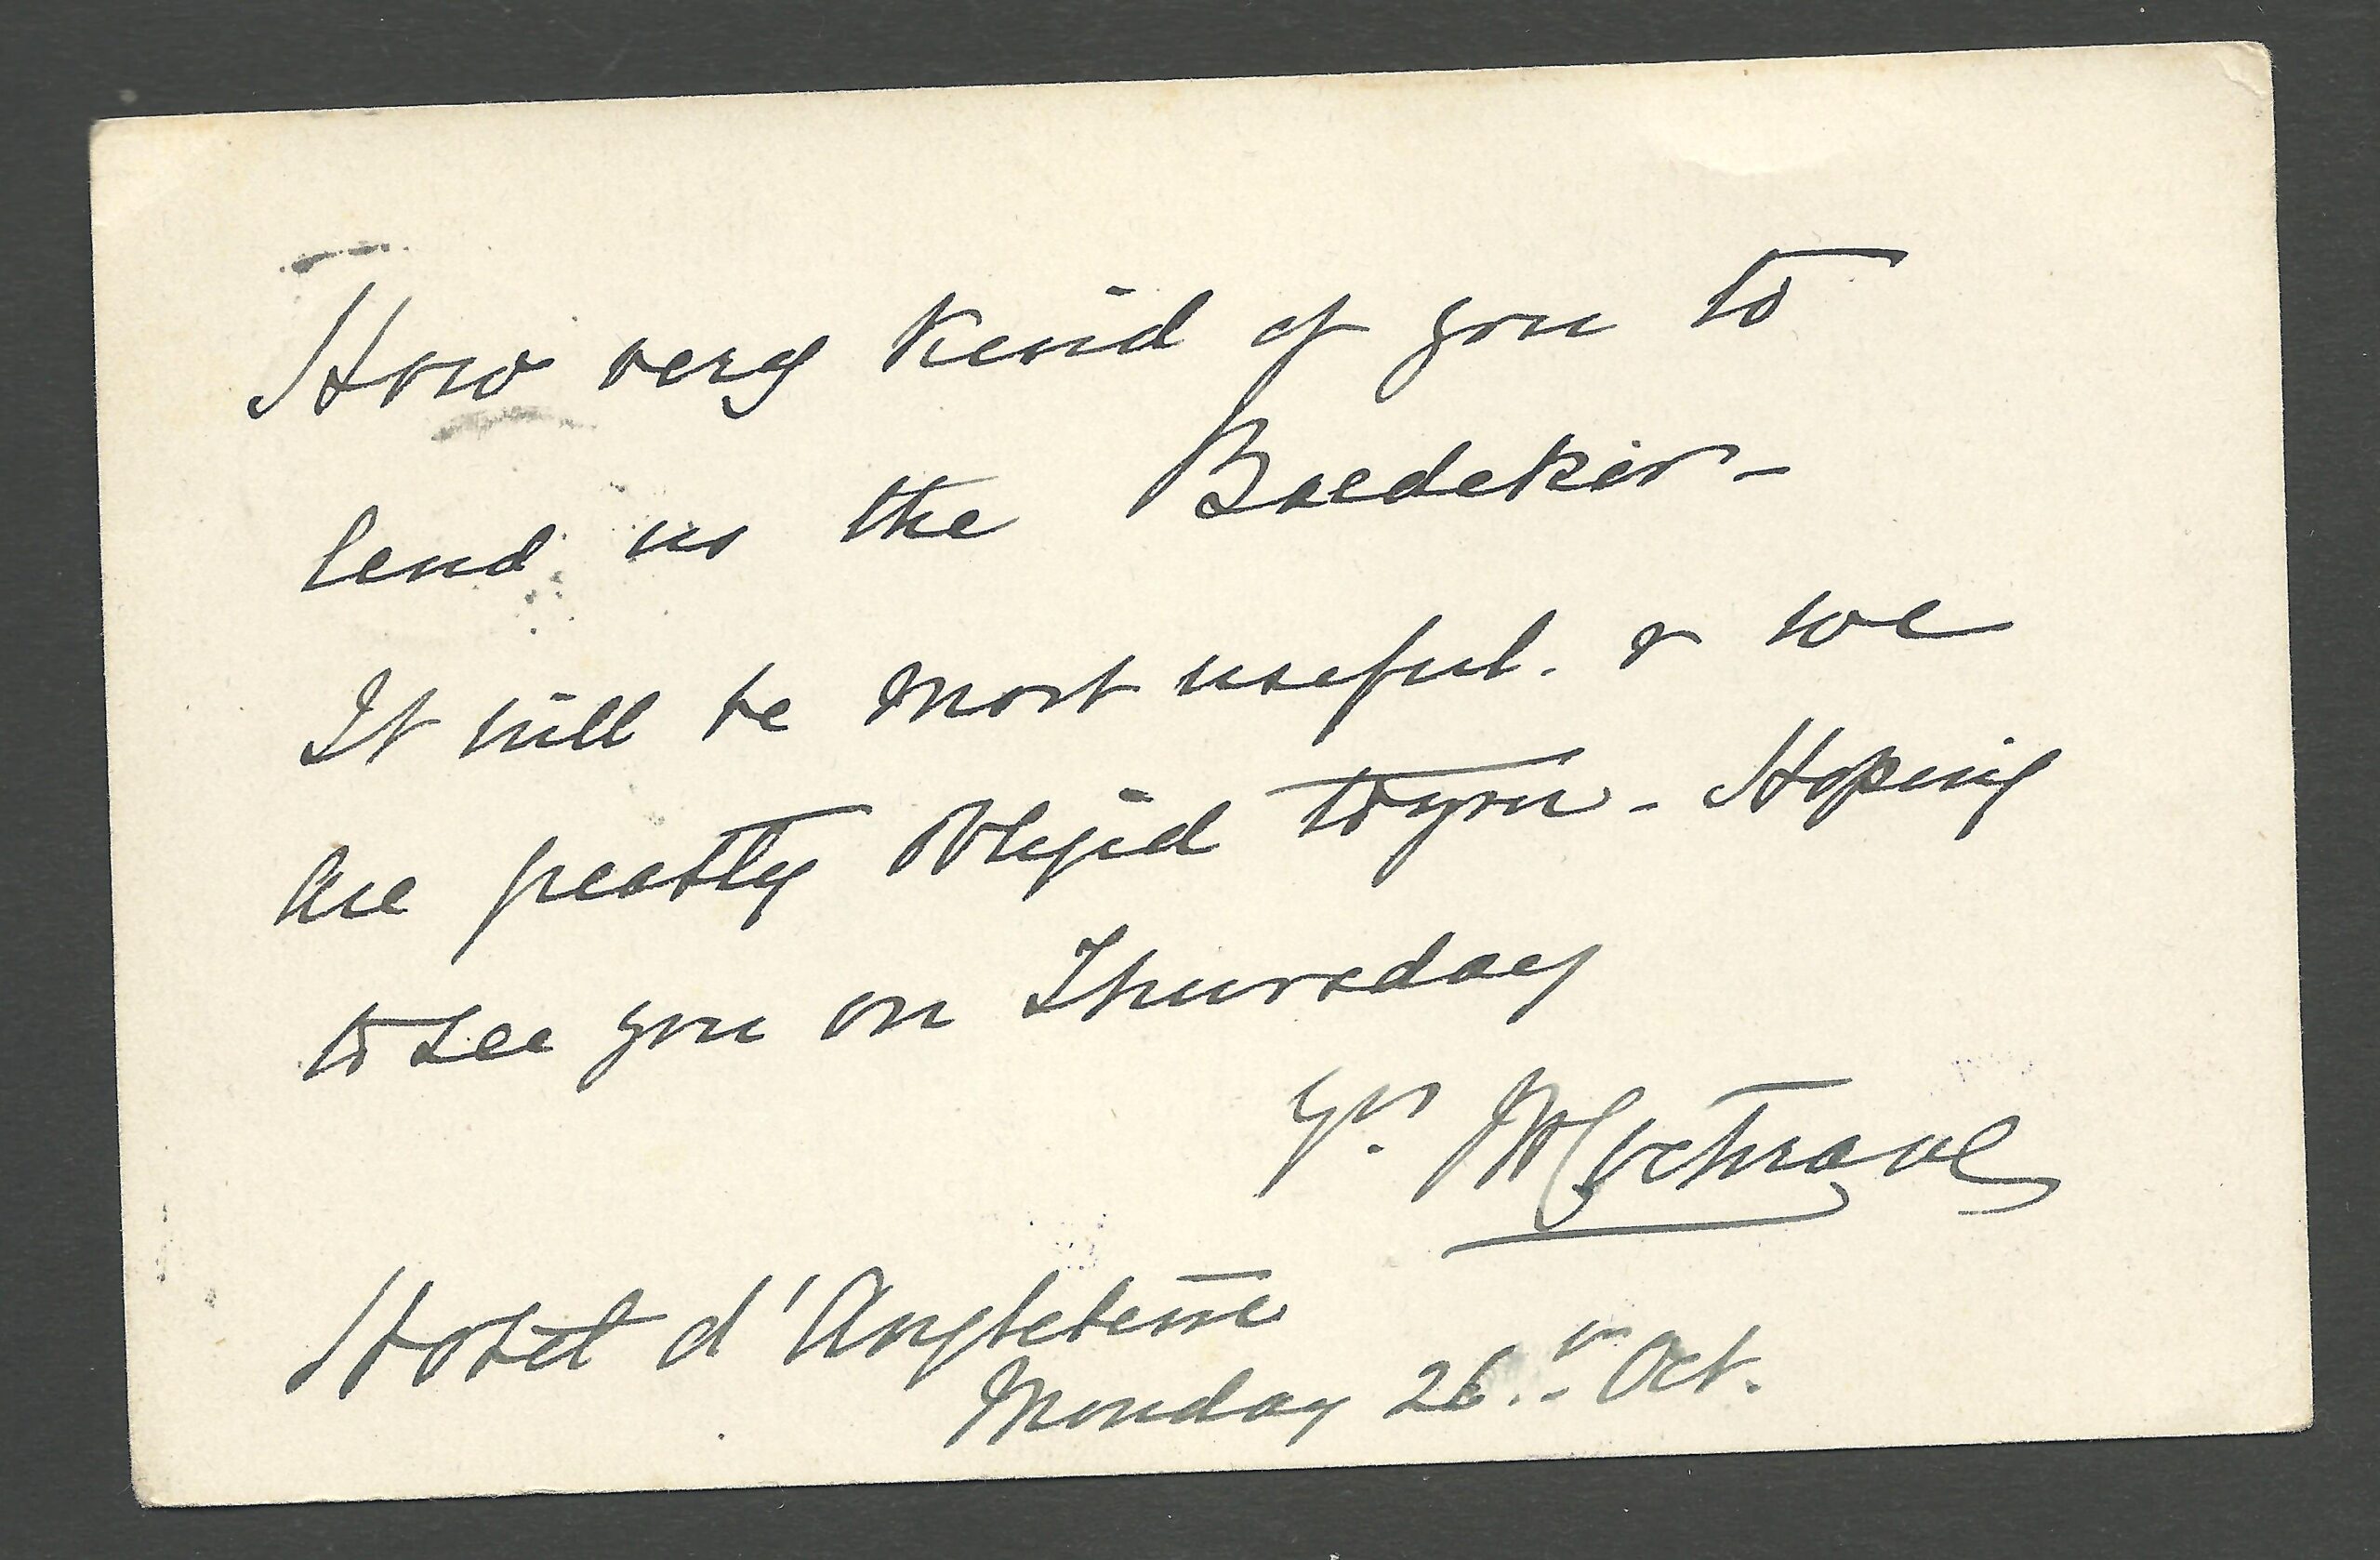 How very kind of you to
lend us the Baedeker -
It will be most useful. & we
are greatly obliged to you - Hoping
to see you on Thursday
Yrs. M Cochrane
Hotel d'Angleterre
Monday 26th Oct.